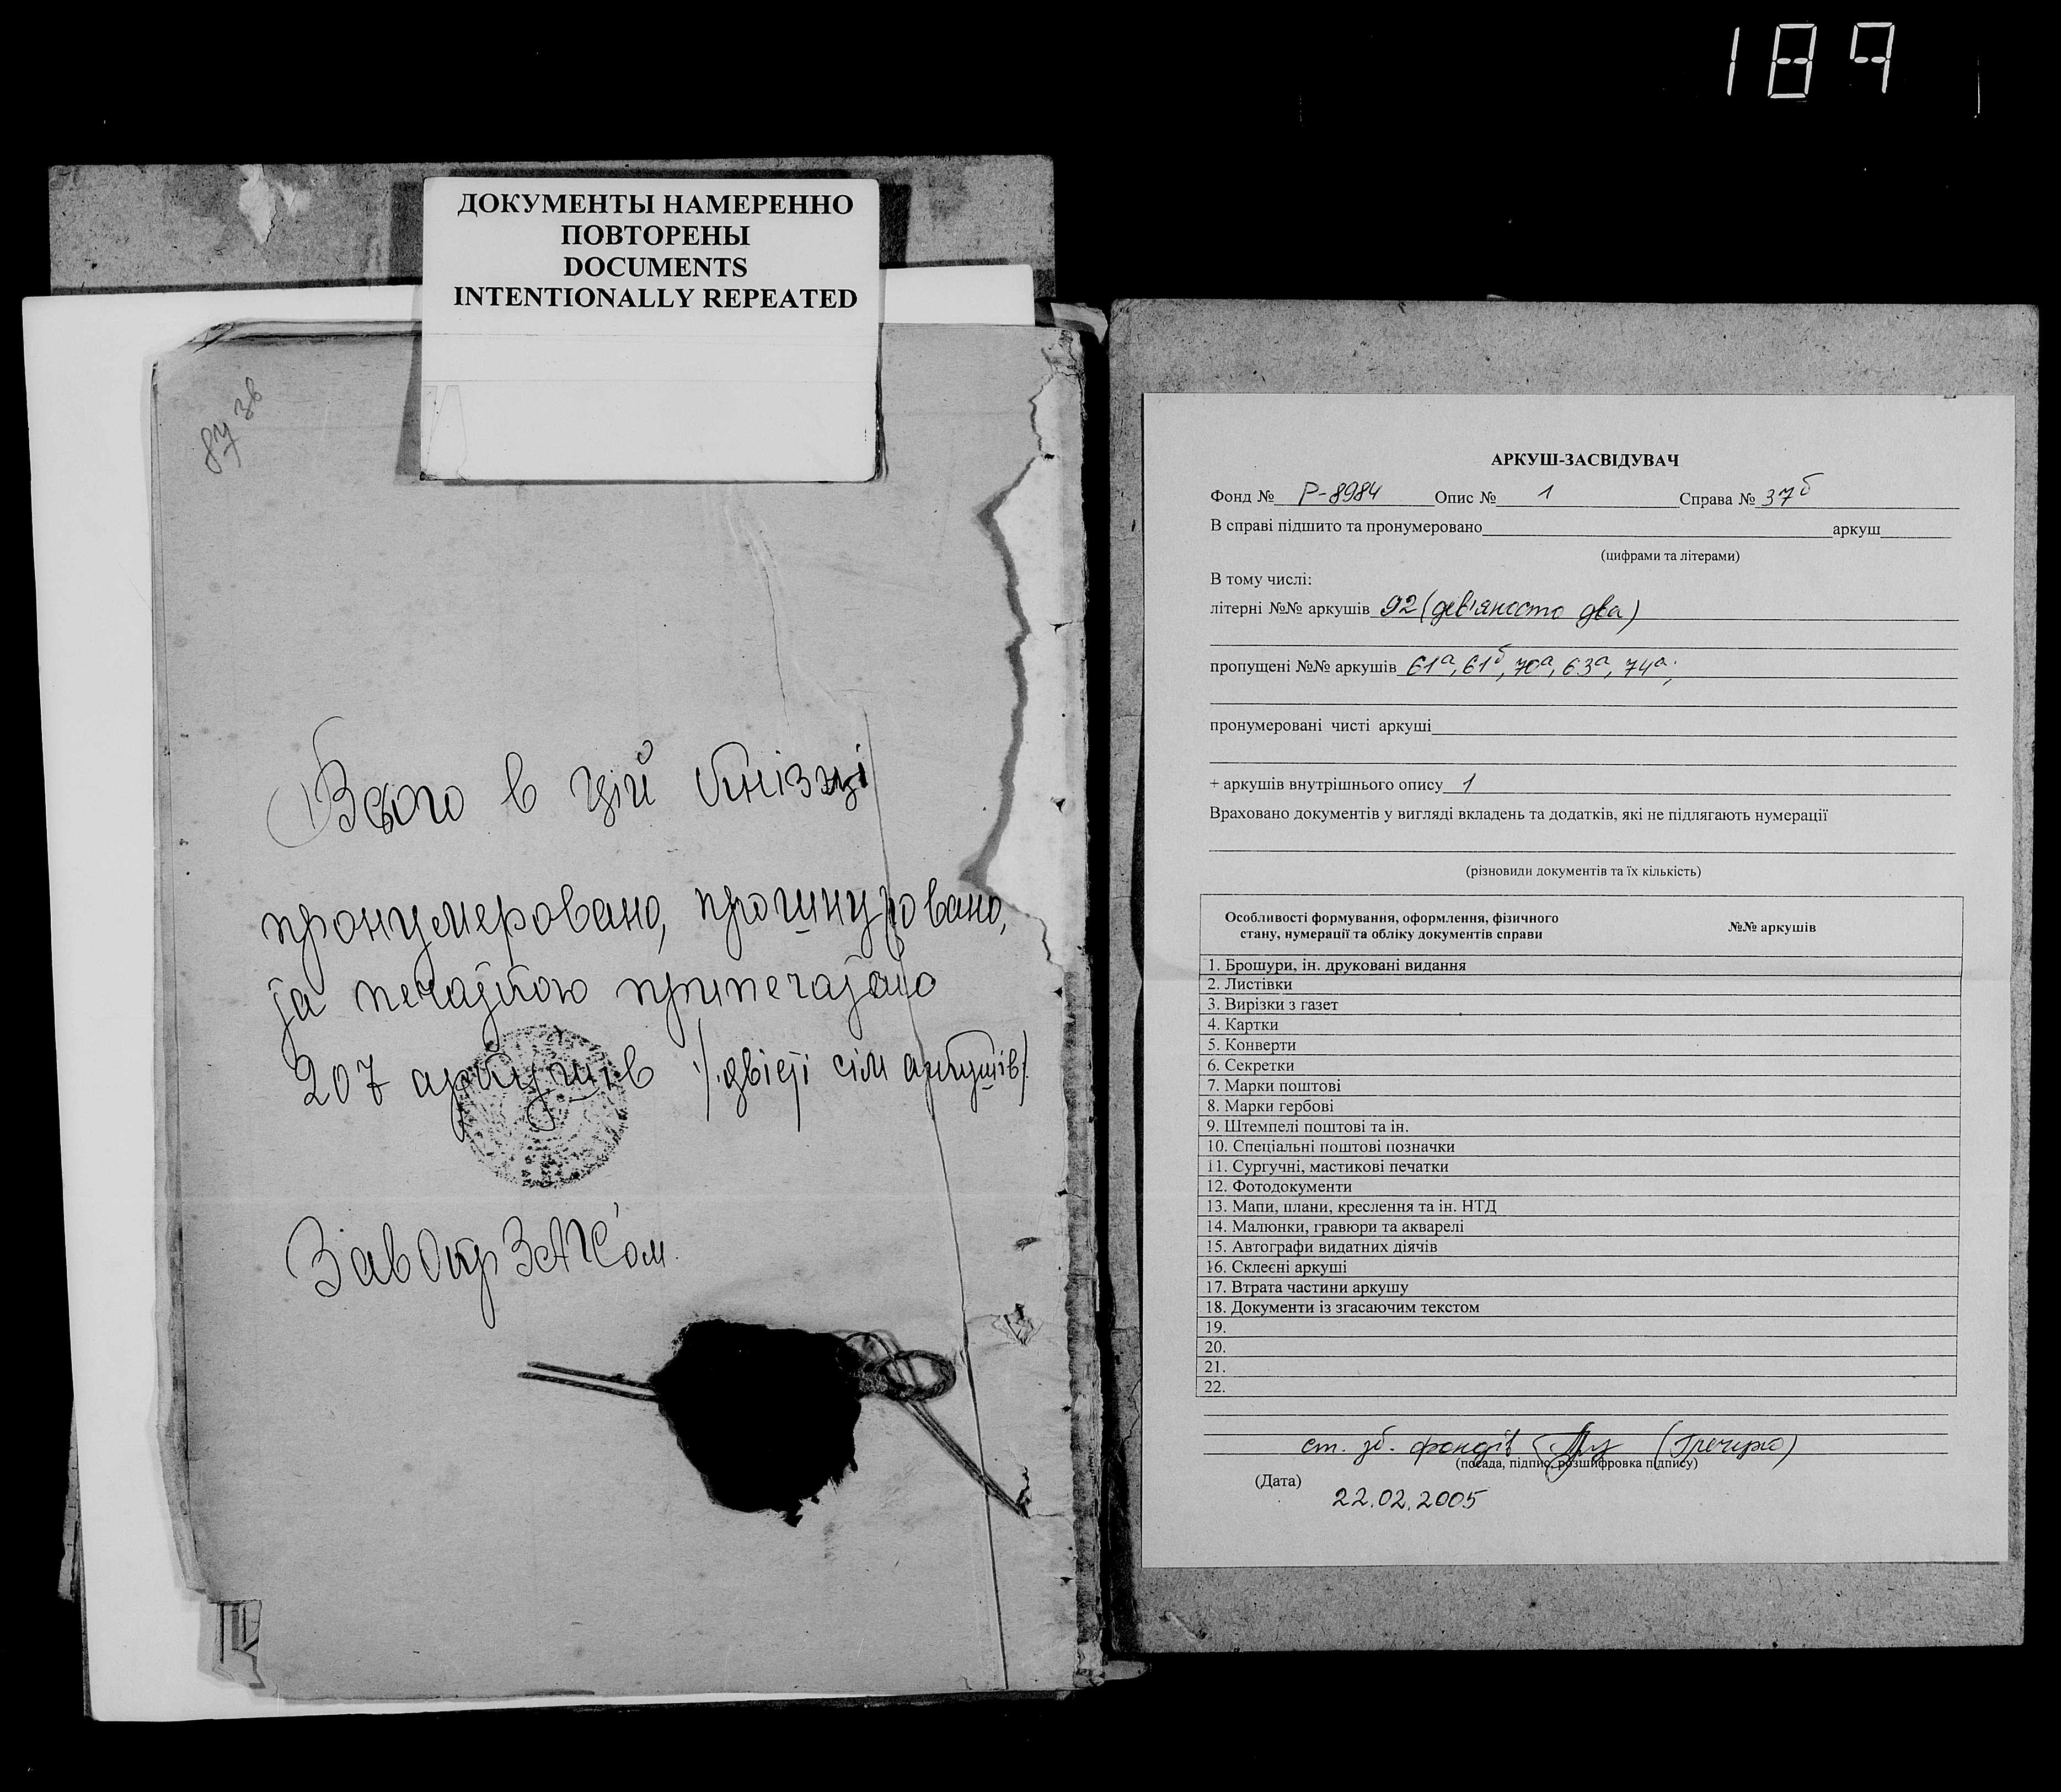 189
ДОКУМЕНТЫ НАМЕРЕННО
ПОВТОРЕНЫ
DOCUMENTS
INTENTIONALLY REPEATED
87 зв
Всього в цій книзці
пронумеровано, прошнуровано,
та печаткою припечатано
207 аркушів /двісті сім аркушів/
Зав Окр ЗАГС'ом.
АРКУШ-ЗАСВІДУВАЧ
Фонд № Р-8984 Опис № 1 Справа № 37б
В справі підшито та пронумеровано аркуш
(цифрами та літерами)
В тому числі:
літерні №№ аркушів 92 (дев'яносто два)
пропущені №№ аркушів 61а, 61б, 70а, 63а, 74а;
пронумеровані чисті аркуші
+ аркушів внутрішнього опису 1
Враховано документів у вигляді вкладень та додатків, які не підлягають нумерації
(різновиди документів та їх кількість)
Особливості формування, оформлення, фізичного
стану, нумерації та обліку документів справи
№№ аркушів
1. Брошури, ін. друковані видання
2. Листівки
3. Вирізки з газет
4. Картки
5. Конверти
6. Секретки
7. Марки поштові
8. Марки гербові
9. Штемпелі поштові та ін.
10. Спеціальні поштові позначки
11. Сургучні, мастикові печатки
12. Фотодокументи
13. Мапи, плани, креслення та ін. НТД
14. Малюнки, гравюри та акварелі
15. Автографи видатних діячів
16. Склеєні аркуші
17. Втрата частини аркушу
18. Документи із згасаючим текстом
19.
20.
21.
22.
ст. зб. фондів
(посада, підпис, розшифровка підпису)
(Дата)
22.02.2005